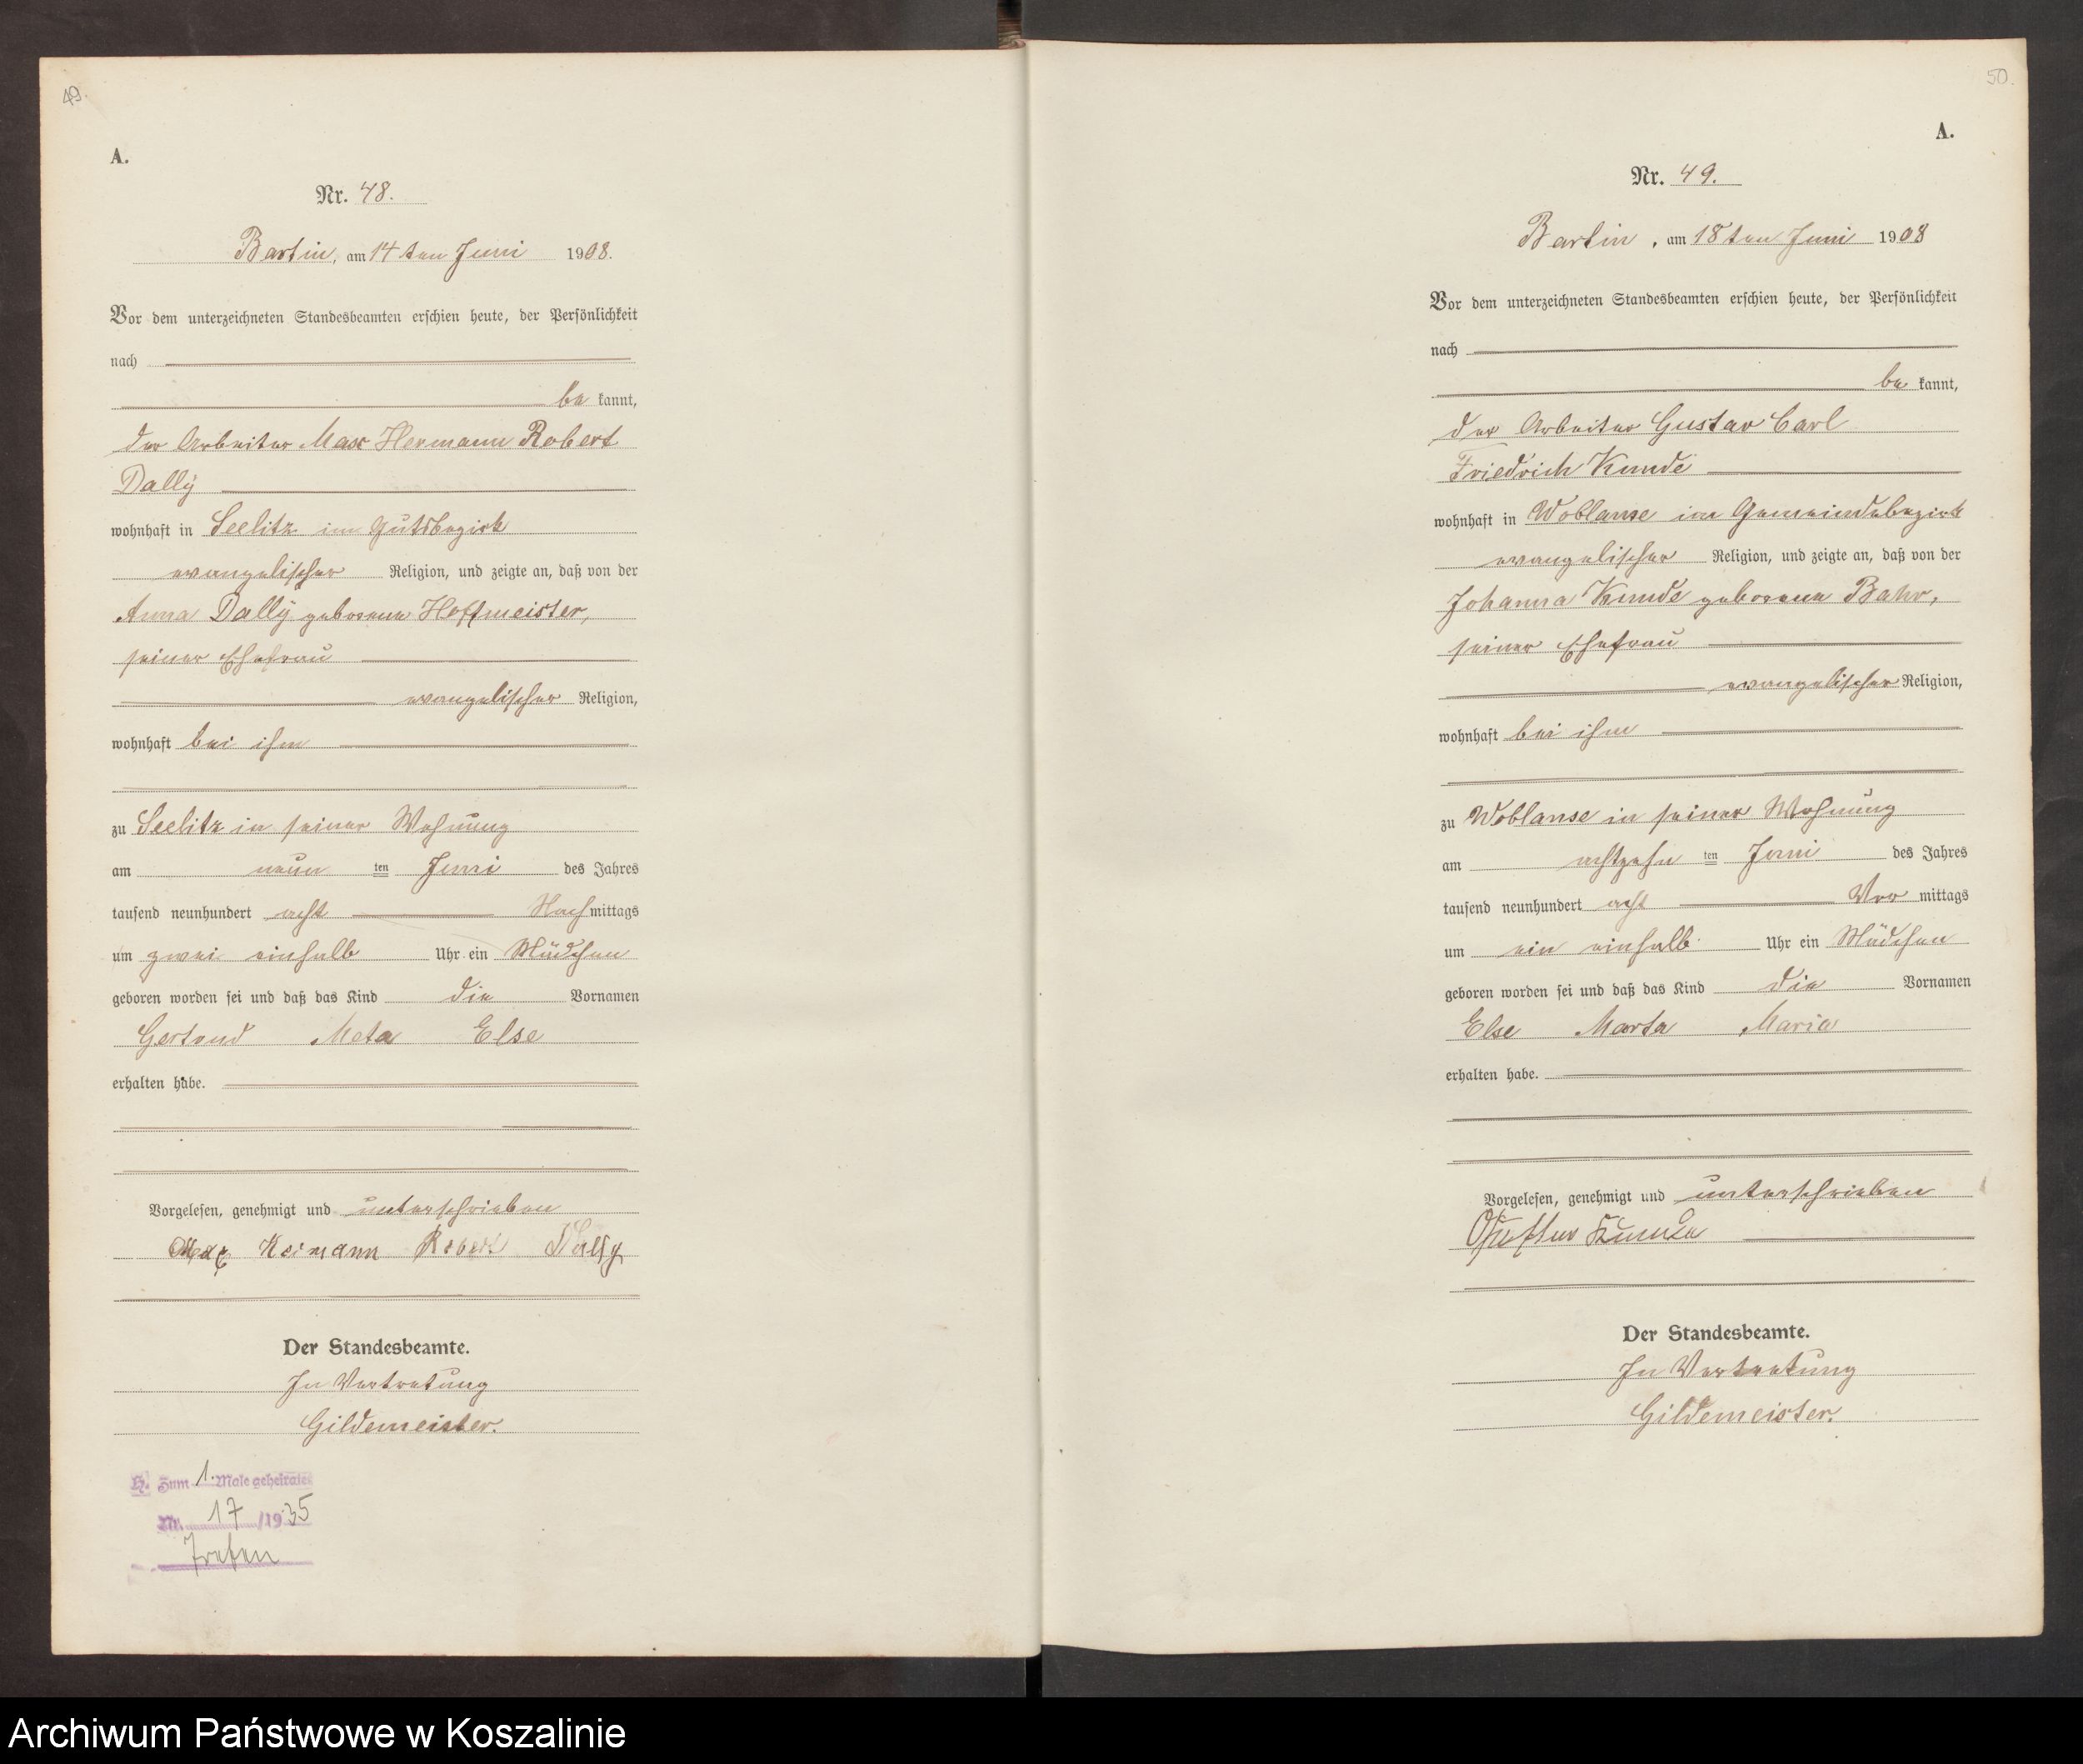 49.
A.
Nr. 48.
Bartin, am 14ten Juni 1908.
Vor dem unterzeichneten Standesbeamten erschien heute, der Persönlichkeit
nach
be kannt,
der Arbeiter Max Hermann Robert
Dally
wohnhaft in Seelitz im Gutsbezirk
evangelischer Religion, und zeigte an, daß von der
Anna Dally geborene Hoffmeister,
seiner Ehefrau
evangelischer Religion,
wohnhaft bei ihm
zu Seelitz in seiner Wohnung
am neun ten Juni des Jahres
tausend neunhundert acht Nachmittags
um zwei einhalb Uhr ein Mädchen
geboren worden sei und daß das Kind die Vornamen
Gertrud Meta Else
erhalten habe.
Vorgelesen, genehmigt und unterschrieben
Max Robert Dally
Der Standesbeamte.
In Vertretung
Gildemeister.
H. Zum 1. Male geheiratet
Nr. 17 /1935
50.
A.
Nr. 49.
Bartin, am 18ten Juni 1908
Vor dem unterzeichneten Standesbeamten erschien heute, der Persönlichkeit
nach
be kannt,
der Arbeiter Gustav Carl
Friedrich Kunde
wohnhaft in Woblanse im Gemeindebezirk
evangelischer Religion, und zeigte an, daß von der
Johanna Kunde geborene Bahr,
seiner Ehefrau
evangelischer Religion,
wohnhaft bei ihm
zu Woblanse in seiner Wohnung
am achtzehn ten Juni des Jahres
tausend neunhundert acht Vor mittags
um ein einhalb Uhr ein Mädchen
geboren worden sei und daß das Kind die Vornamen
Else Marta Maria
erhalten habe.
Vorgelesen, genehmigt und unterschrieben
Gustav Kunde
Der Standesbeamte.
In Vertretung
Gildemeister.
Archiwum Państwowe w Koszalinie